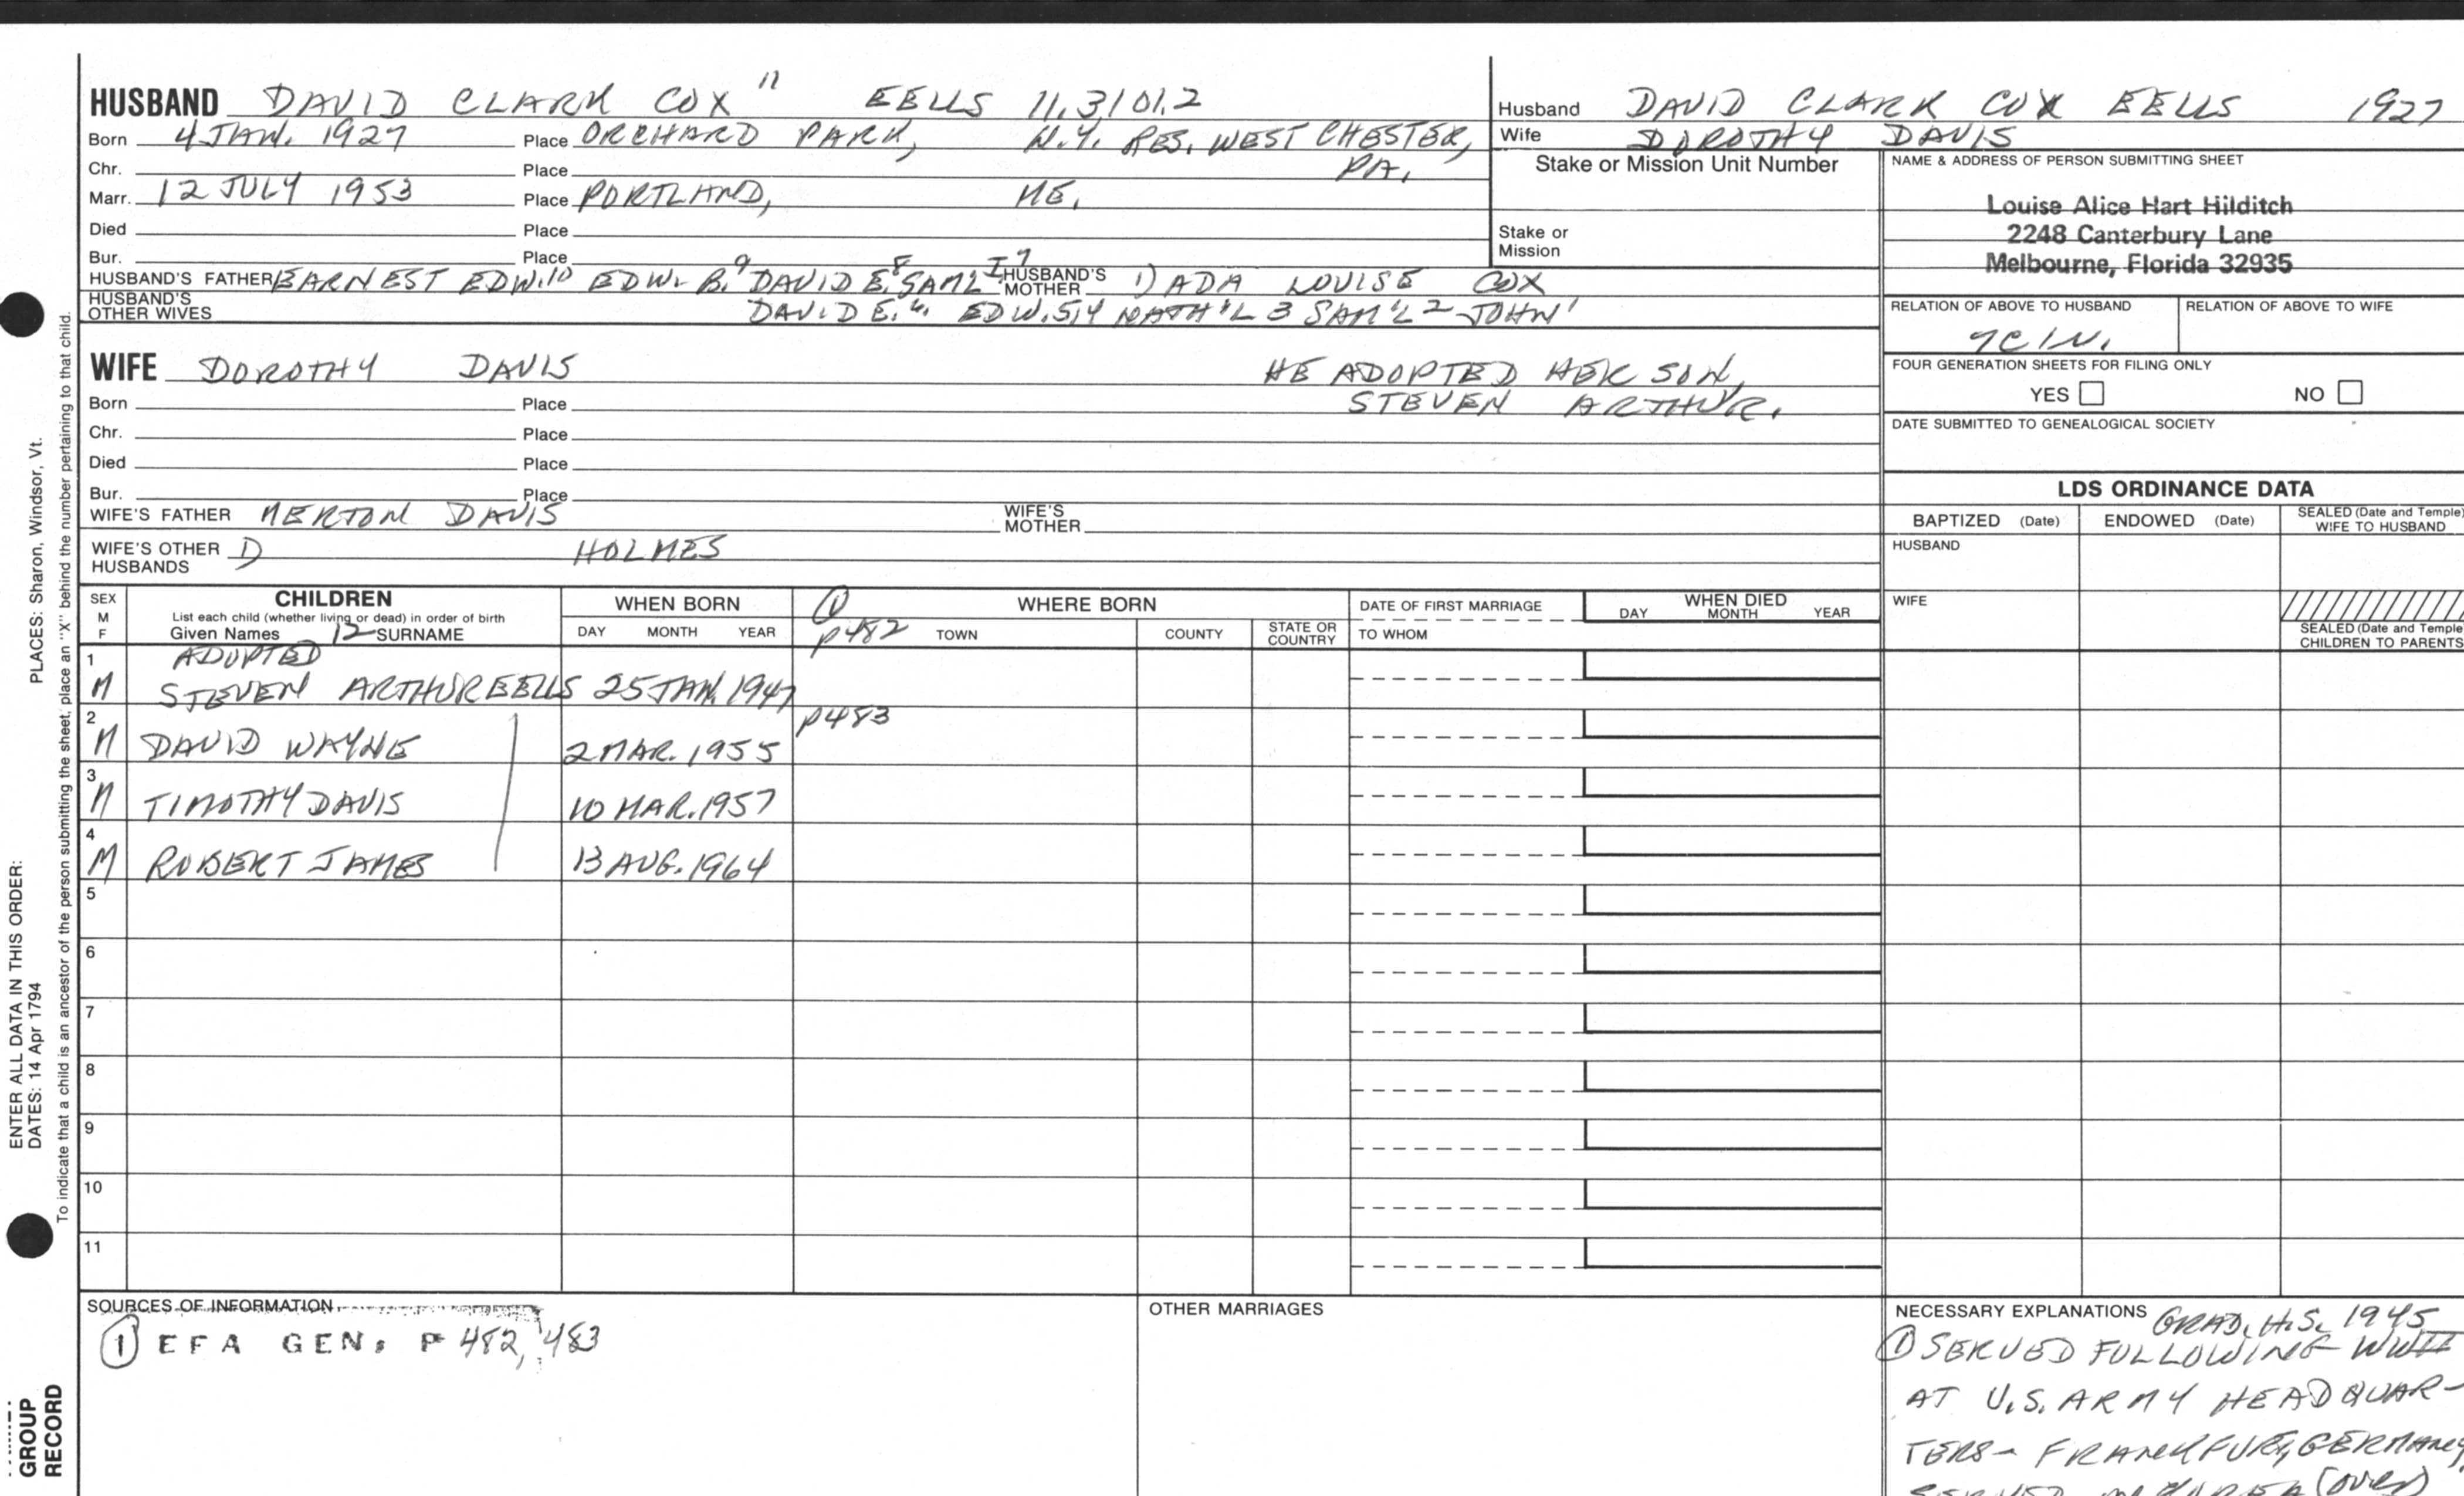 HUSBAND DAVID CLARK COX 11 EELLS 11.3101.2
Born 4 JAN. 1927 Place ORCHARD PARK, N.Y. RES. WEST CHESTER,
Chr. Place PA.
Marr. 12 JULY 1953 Place PORTLAND, ME.
Died Place
Bur. Place
HUSBAND'S FATHER EARNEST EDW.10 EDW. B.9 DAVID E.8 SAML I7 HUSBAND'S MOTHER 1) ADA LOUISE COX
HUSBAND'S OTHER WIVES DAVID E.6. EDW.5,4 NATH'L 3 SAM'L 2 JOHN 1
WIFE DOROTHY DAVIS HE ADOPTED HER SON,
Born Place STEVEN ARTHUR.
Chr. Place
Died Place
Bur. Place
WIFE'S FATHER MERTON DAVIS WIFE'S MOTHER
WIFE'S OTHER HUSBANDS 1) HOLMES
Husband DAVID CLARK COX EELLS 1927
Wife DOROTHY DAVIS
Stake or Mission Unit Number
Stake or
Mission
NAME & ADDRESS OF PERSON SUBMITTING SHEET
Louise Alice Hart Hilditch
2248 Canterbury Lane
Melbourne, Florida 32935
RELATION OF ABOVE TO HUSBAND RELATION OF ABOVE TO WIFE
7C1N.
FOUR GENERATION SHEETS FOR FILING ONLY
YES NO
DATE SUBMITTED TO GENEALOGICAL SOCIETY
LDS ORDINANCE DATA
BAPTIZED (Date) ENDOWED (Date) SEALED (Date and Temple) WIFE TO HUSBAND
HUSBAND
WIFE
SEALED (Date and Temple
CHILDREN TO PARENTS
SEX M F
CHILDREN
List each child (whether living or dead) in order of birth
Given Names 12 SURNAME
WHEN BORN
DAY MONTH YEAR
① p482
WHERE BORN
TOWN COUNTY STATE OR COUNTRY
DATE OF FIRST MARRIAGE
TO WHOM
WHEN DIED
DAY MONTH YEAR
1 ADOPTED
M STEVEN ARTHUR EELLS 25 JAN. 1947
2 p483
M DAVID WAYNE 2 MAR. 1955
3
M TIMOTHY DAVIS 10 MAR. 1957
4
M ROBERT JAMES 13 AUG. 1964
5
6
7
8
9
10
11
SOURCES OF INFORMATION
① EFA GEN: P 482, 483
OTHER MARRIAGES
NECESSARY EXPLANATIONS GRAD. H.S. 1945
① SERVED FOLLOWING WWII
AT U.S. ARMY HEADQUAR-
TERS- FRANKFURT, GERMANY,
SERVED KOREA (over)
PLACES: Sharon, Windsor, Vt.
ENTER ALL DATA IN THIS ORDER:
DATES: 14 Apr 1794
To indicate that a child is an ancestor of the person submitting the sheet, place an "X" behind the number pertaining to that child.
GROUP
RECORD